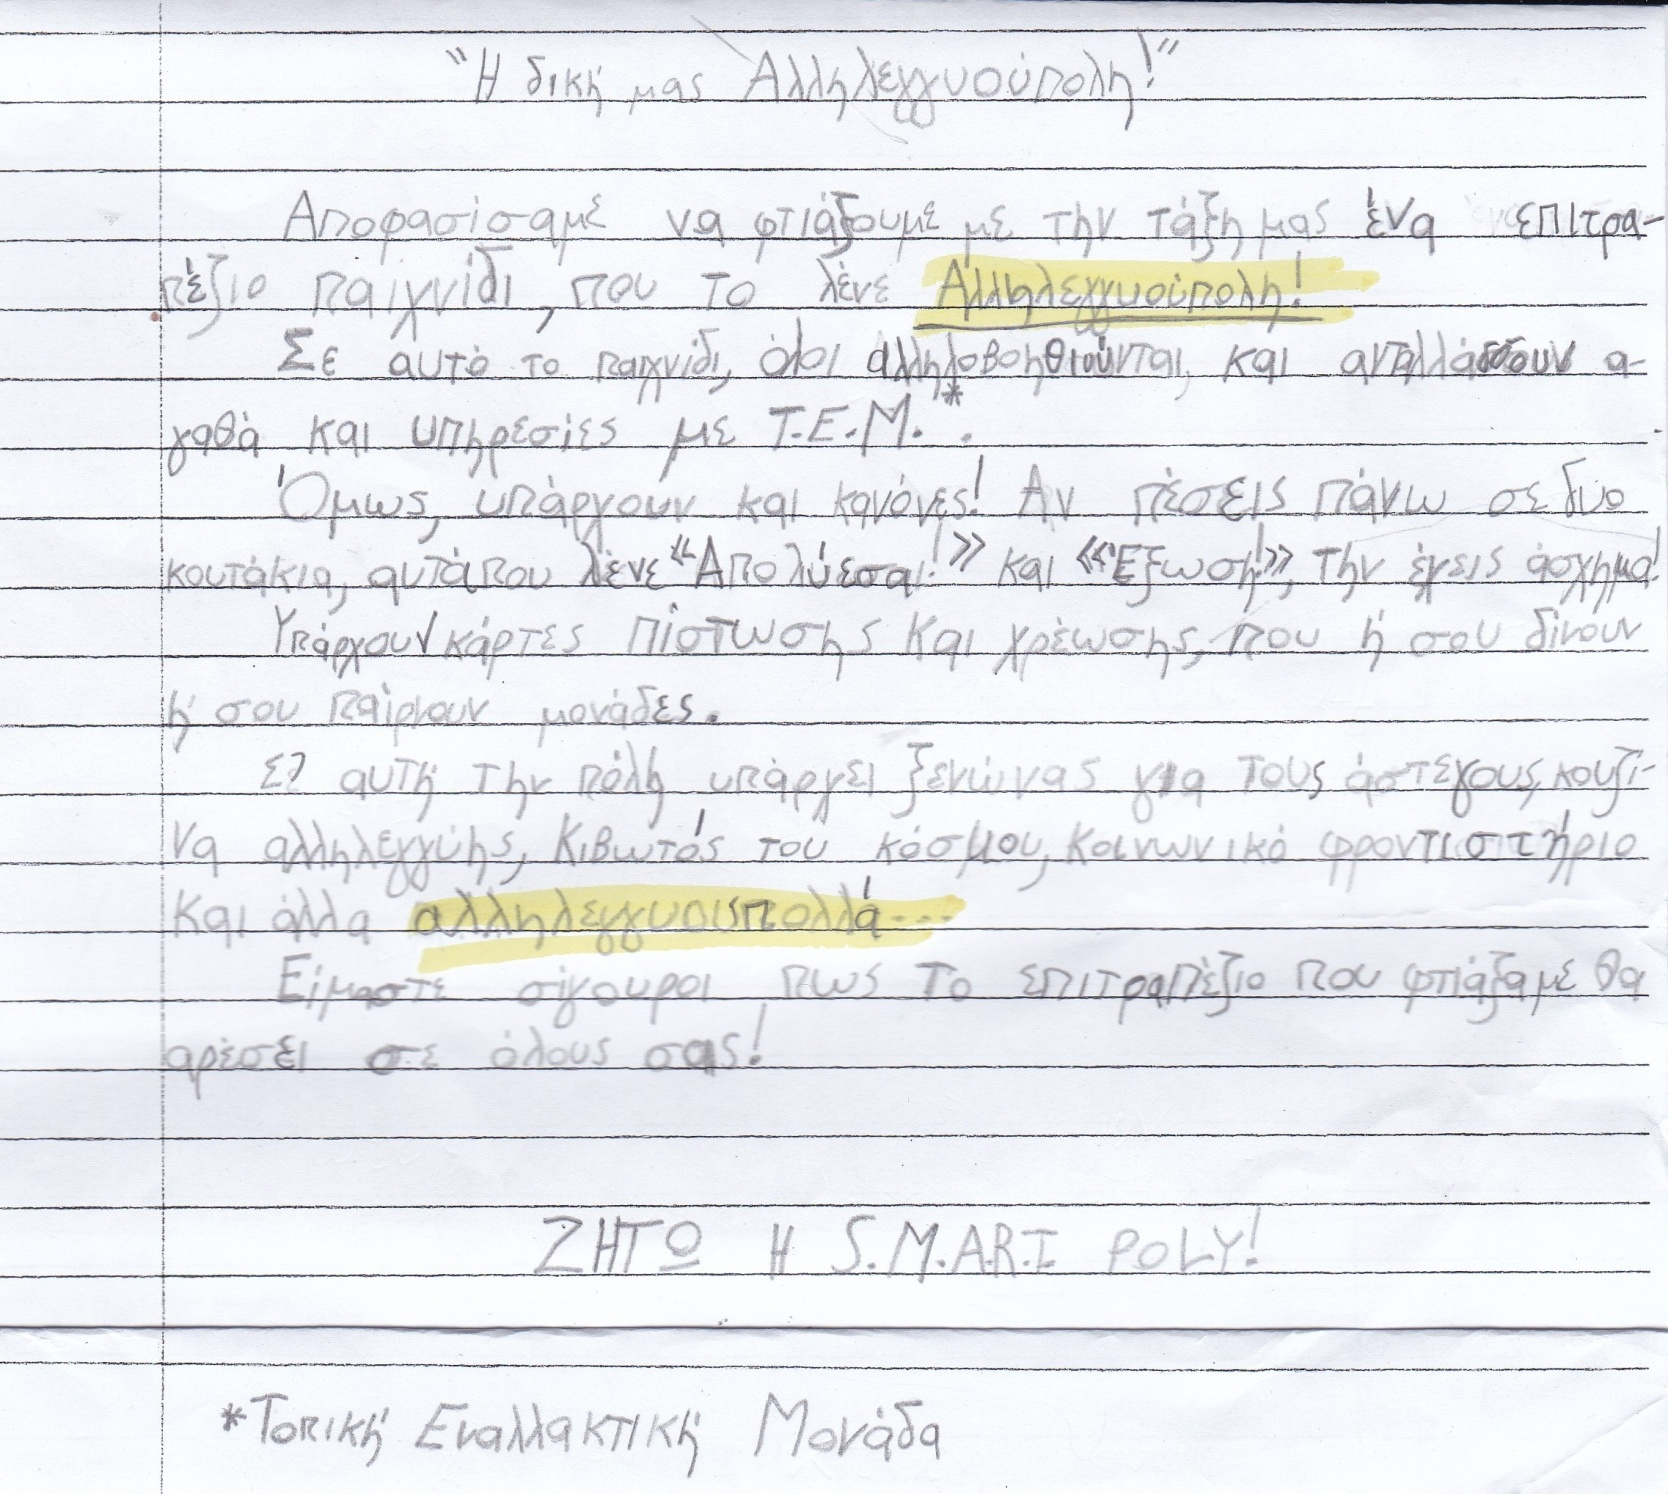 "Η δική μας Αλληλεγγυούπολη!"
Αποφασίσαμε να φτιάξουμε με την τάξη μας ένα επιτρα-
πέζιο παιχνίδι, που το λένε Αλληλεγγυούπολη!
Σε αυτό το παιχνίδι, όλοι αλληλοβοηθιούνται, και ανταλλάσσουν α-
γαθά και υπηρεσίες με Τ.Ε.Μ.*.
Όμως, υπάρχουν και κανόνες! Αν πέσεις πάνω σε δυο
κουτάκια, αυτά που λένε «Απολύεσαι!» και «Έξωση!», την έχεις άσχημα!
Υπάρχουν κάρτες πίστωσης και χρέωσης, που ή σου δίνουν
ή σου παίρνουν μονάδες.
Σ' αυτή την πόλη υπάρχει ξενώνας για τους άστεγους, κουζί-
να αλληλεγγύης, Κιβωτός του κόσμου, κοινωνικό φροντιστήριο
και άλλα αλληλεγγυουπολλά....
Είμαστε σίγουροι πως το επιτραπέζιο που φτιάξαμε θα
αρέσει σε όλους σας!
ΖΗΤΩ Η S.M.A.R.I POLY!
*Τοπική Εναλλακτική Μονάδα